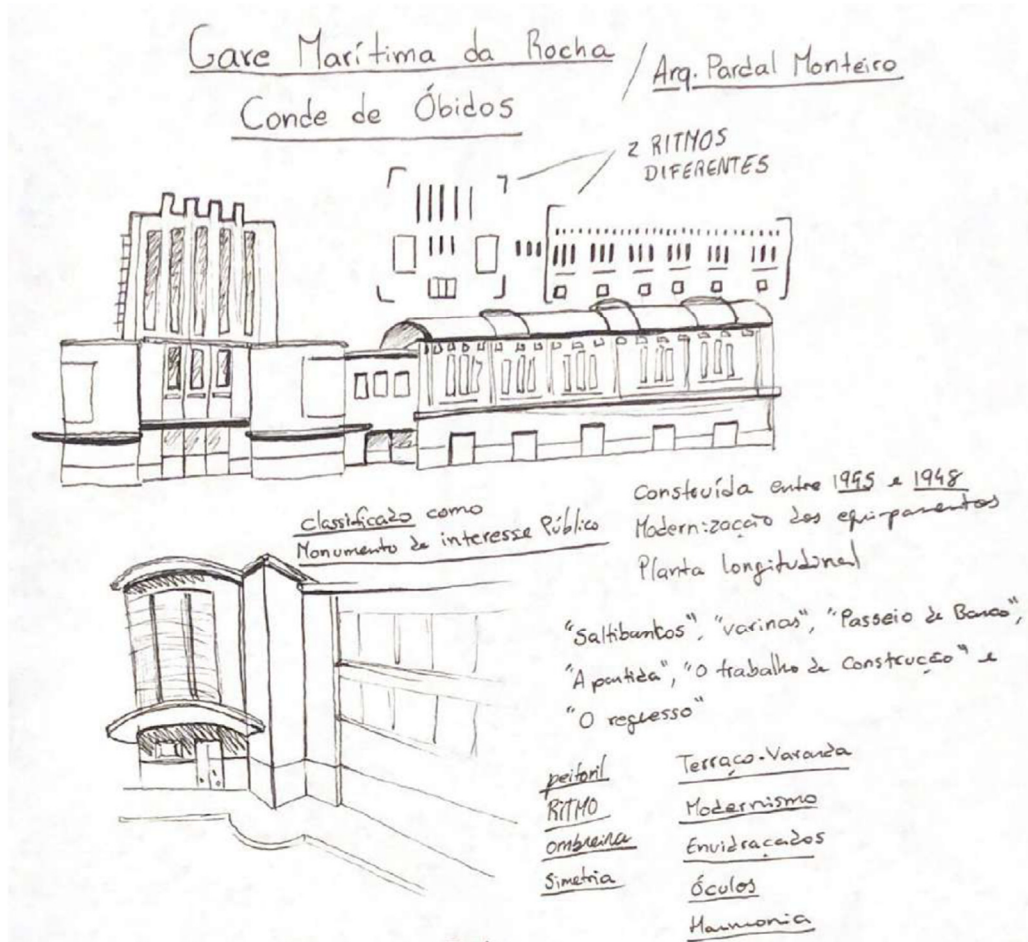 Gare Marítima da Rocha
Conde de Óbidos
/ Arq. Pardal Monteiro
2 RITMOS
DIFERENTES
classificado como
Monumento de interesse Público
Construída entre 1945 e 1948
Modernização dos equipamentos
Planta longitudinal
"Saltibantos", "varinas", "Passeio de Barco",
"A partida", "O trabalho de Construcção" e
"O regresso"
peitoril
RITMO
ombreira
Simetria
Terraço-Varanda
Modernismo
Envidraçados
Óculos
Harmonia